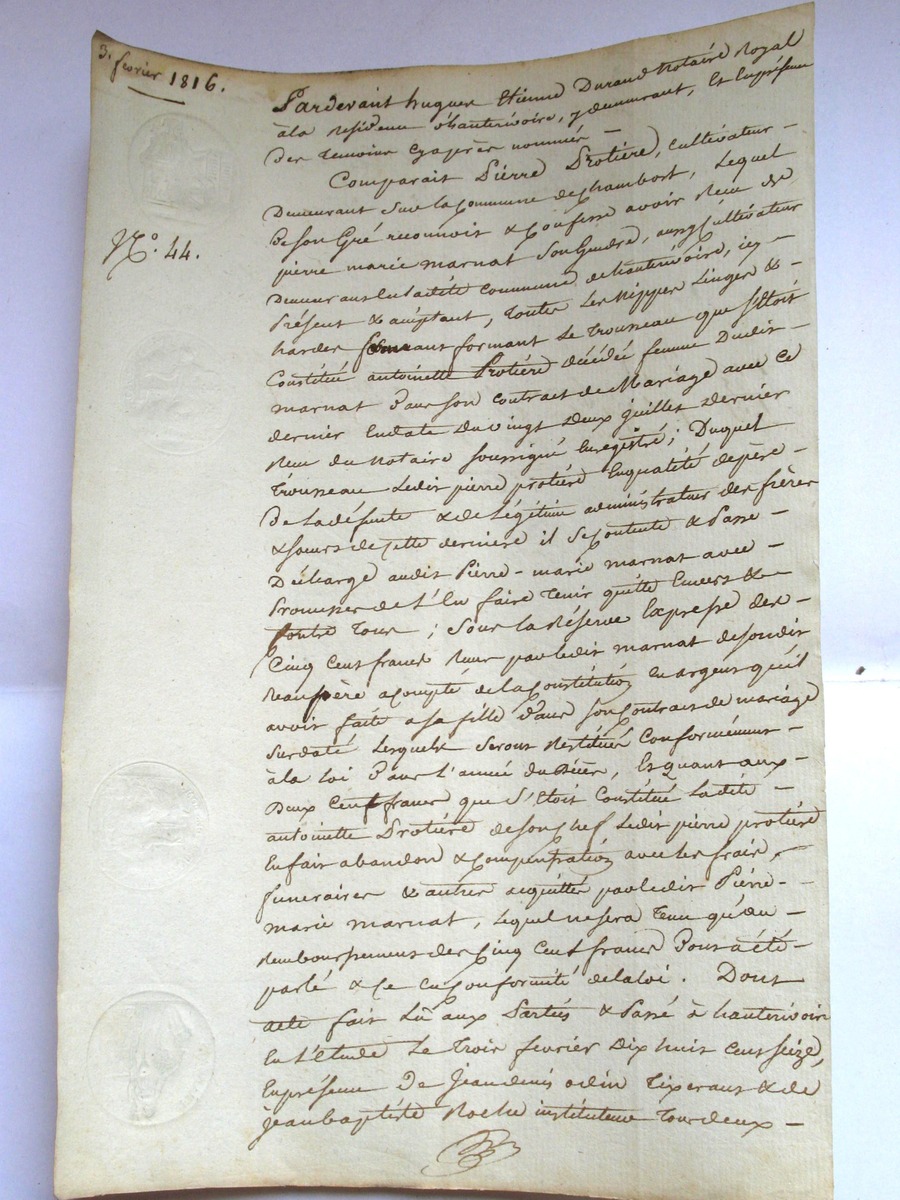 3. fevrier 1816.
Pardevant hugues Etienne Durand Notaire Royal
à la Residence d'hauterivoire, y demeurant, Et En présence
des temoins cyaprès nommés —
Comparait Pierre Protière, cultivateur —
Demeurant sur la Commune de chambost, Lequel
de Son Gré reconnoit & Confesse avoir Reçu de
N.º 44.
pierre marie marnat Son Gendre, aussy Cultivateur
Demeurant En la dité Commune de hauterivoire, icy —
Présent & acceptant, toutes Les Nippes Linges & —
hardes formant Le Trousseau que S'Etoit
Constitué antoinette Protière décédée femme Dudit —
marnat Dans Son Contract de Mariage avec Ce
dernier En date Du vingt Deux juillet Dernier
Reçu du Notaire Soussigné Enregistré; Duquel
Trousseau Ledit pierre protière En qualité de père —
de La défunte & de Légitime administrateur des frères
& Sœurs de Cette derniere il Se Contente & Passe —
Décharge audit Pierre-marie marnat avec —
Promesses de L'En faire Tenir quitte Envers & —
Contre Tous; Sous La Réserve Expresse des —
Cinq Cent francs Reçus par Ledit marnat de Son dit
Beaupère acompte de La Constitution En argent qu'il
avoit faité a sa fille Dans Son Contract de mariage
Susdaté Lesquels Seront Restitués Conformément —
à la loi Dans L'année du , Et quant aux —
Deux Cent francs que S'Etoit Constitué Ladité —
antoinette Protière de Son Chef Ledit pierre protière
En fait abandon & Compensation avec Les frais
funeraires & autres acquittés par Ledit Pierre-
marie marnat, Lequel ne Sera Tenu qu'au —
Remboursement des Cinq Cent francs Dont a été —
parlé & Ce en Conformité de la loi. Dont
acte fait Lû aux Parties & Passé à hauterivoire
En L'étude Le Trois fevrier Dix huit Cent Seize,
En présence de Jean denis odin Tixerant & de
jean baptiste Roche instituteur Tous deux —